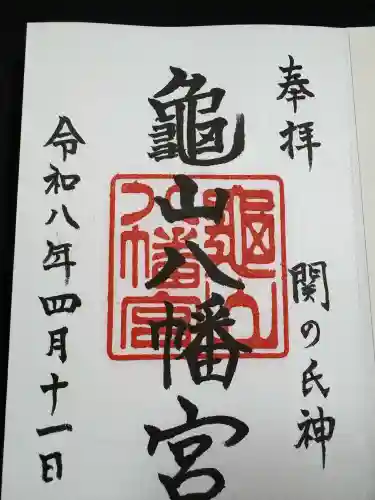 奉拝
関の氏神
龜山八幡宮
龜山八幡宮
令和八年四月十一日